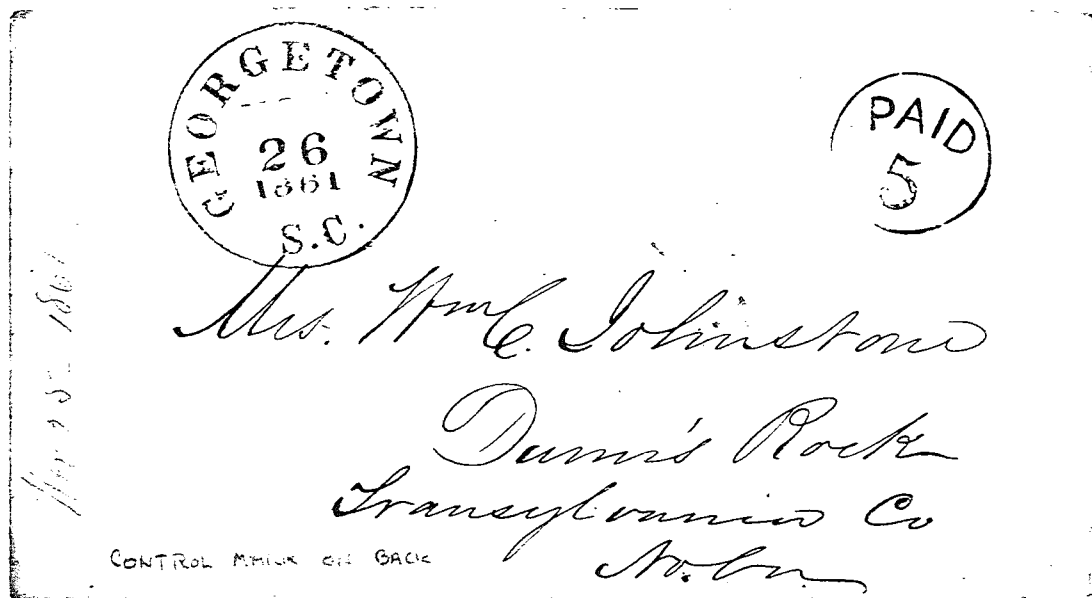 GEORGETOWN
26
1861
S.C.
PAID
5
Mrs. Wm C. Johnstone
Dunn's Rock
Transylvania Co
No. Ca.
25 1861
CONTROL MARK ON BACK